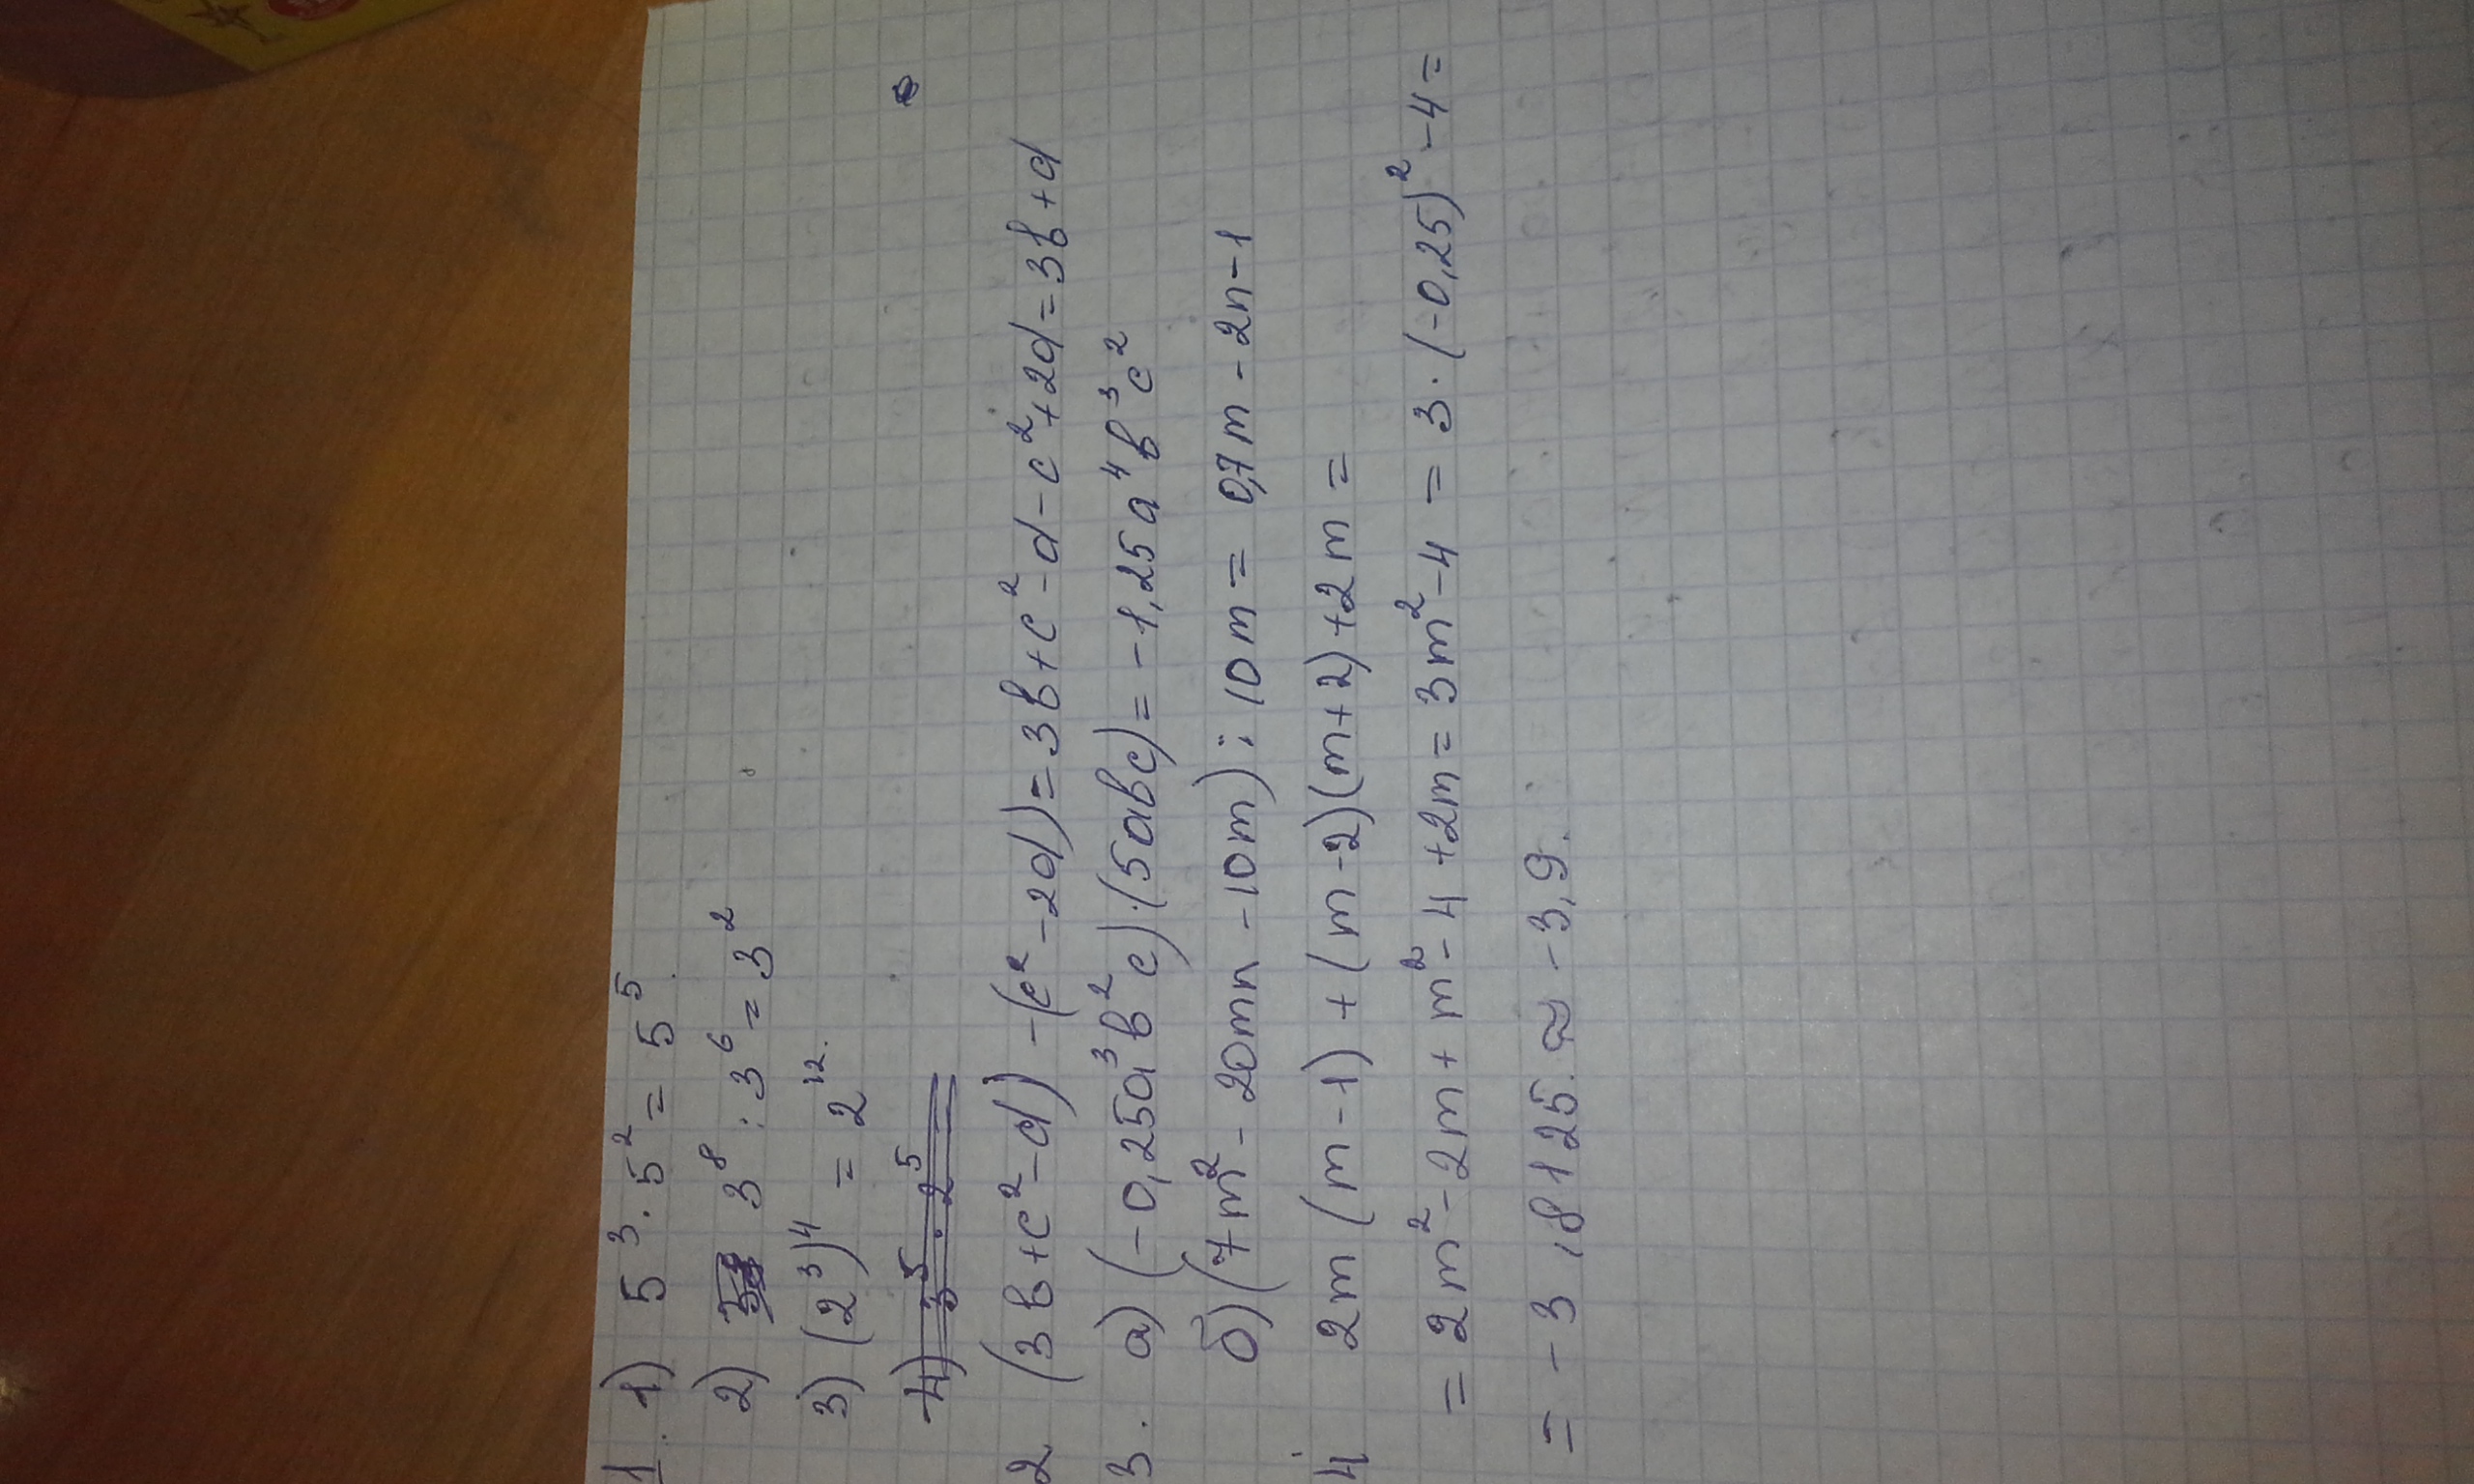 1. 1) 5³·5² = 5⁵
2) 3⁸ : 3⁶ = 3²
3) (2³)⁴ = 2¹².
4) 3⁵ · 2⁵
2 (3в+c²-d) -(c²-2d)=3в+c²-d-c²+2d=3в+d
3. а) (-0,25a³в²c)·(5aвc)=-1,25a⁴в³c²
б)(7m²-20mn-10m):10m= 0,7m-2n-1
4 2m(m-1)+(m-2)(m+2)+2m=
=2m²-2m+m²-4+2m=3m²-4=3·(-0,25)²-4=
=-3,8125.≈-3,9.